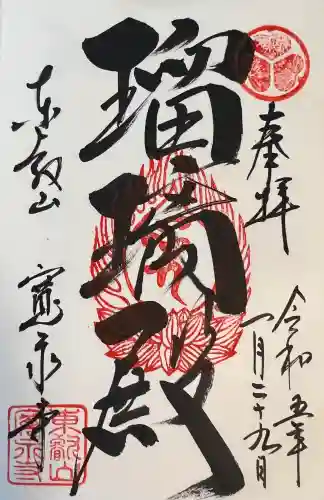 奉拝
令和五年
一月二十九日
瑠璃殿
東叡山
寛永寺
東叡山
寛永寺